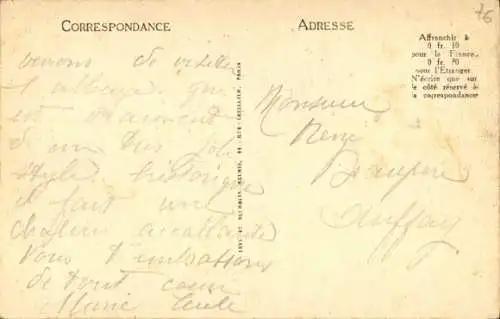 CORRESPONDANCE
ADRESSE
76
Affranchir à
0 fr. 10
pour la France,
0 fr. 20
pour l'Étranger
N'écrire que sur
le côté réservé à
la correspondance
venons de visiter
l'abbaye qui
est vraiment
d'un très joli
style historique
il fait une
chaleur accablante
Vous embrassons
de tout coeur
Marie
Monsieur
René
Beaupère
Auffay